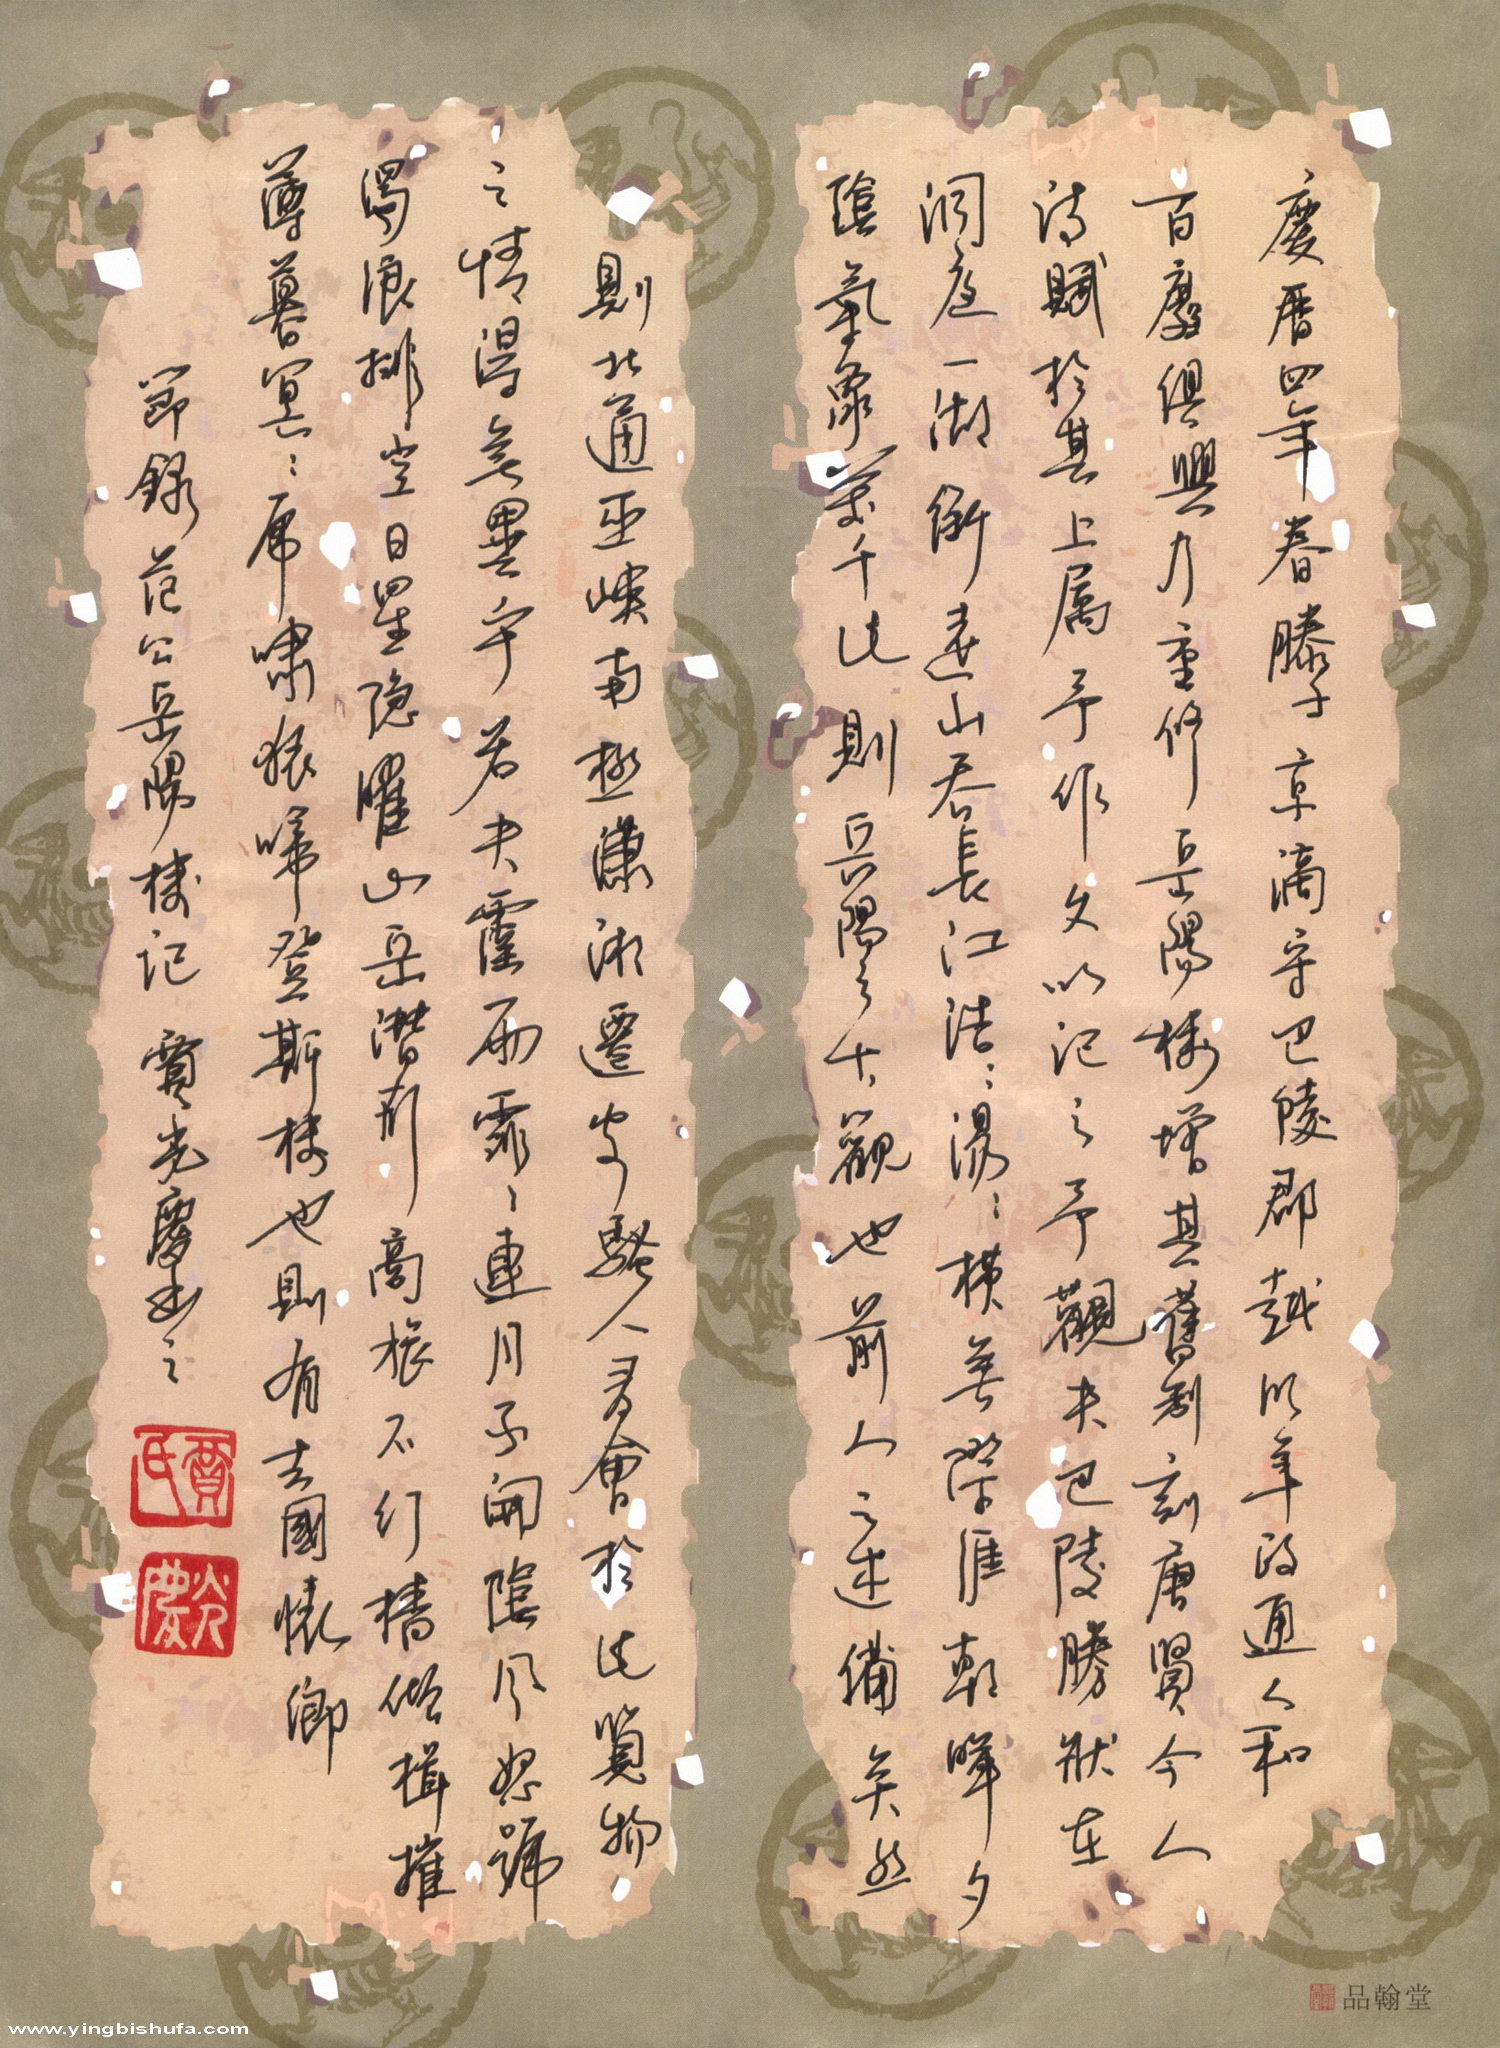 慶曆四年春滕子京謫守巴陵郡越明年政通人和
百廢俱興乃重修岳陽樓增其舊制刻唐賢今人
詩賦於其上屬予作文以記之予觀夫巴陵勝狀在
洞庭一湖銜遠山吞長江浩浩湯湯橫無際涯朝暉夕
陰氣象萬千此則岳陽之大觀也前人之述備矣然
則北通巫峽南極瀟湘遷客騷人多會於此覽物
之情得無異乎若夫霪雨霏霏連月不開陰風怒號
濁浪排空日星隱曜山岳潛形商旅不行檣傾楫摧
薄暮冥冥虎嘯猿啼登斯樓也則有去國懷鄉
節錄范公岳陽樓記 賈光慶書之
賈氏
光慶
品翰堂
www.yingbishufa.com